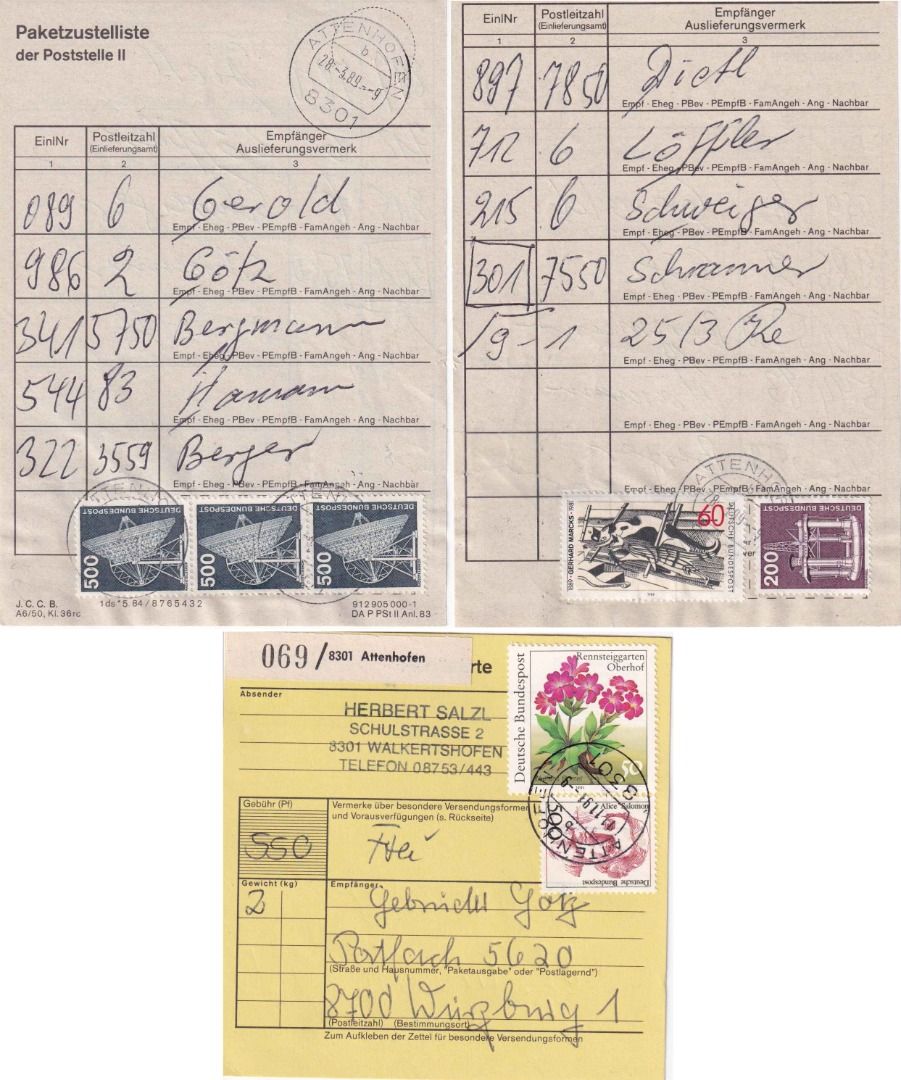 Paketzustelliste
der Poststelle II
ATTENHOFEN
b
28.-3.89.--9
8301
EinlNr
Postleitzahl
(Einlieferungsamt)
Empfänger
Auslieferungsvermerk
1 2 3
089 6 Gerold
Empf - Eheg - PBev - PEmpfB - FamAngeh - Ang - Nachbar
986 2 Götz
Empf - Eheg - PBev - PEmpfB - FamAngeh - Ang - Nachbar
341 5750 Bergmann
Empf - Eheg - PBev - PEmpfB - FamAngeh - Ang - Nachbar
544 83 Hamann
Empf - Eheg - PBev - PEmpfB - FamAngeh - Ang - Nachbar
322 3559 Berger
Empf - Eheg - PBev - PEmpfB - FamAngeh - Ang - Nachbar
DEUTSCHE BUNDESPOST 500
DEUTSCHE BUNDESPOST 500
DEUTSCHE BUNDESPOST 500
J. C. C. B. 1ds *5. 84 / 8 7 6 5 4 3 2
A6/50, Kl. 36rc
912 905 000-1
DA P PSt II Anl. 83
EinlNr
Postleitzahl
(Einlieferungsamt)
Empfänger
Auslieferungsvermerk
1 2 3
897 7850 Dietl
Empf - Eheg - PBev - PEmpfB - FamAngeh - Ang - Nachbar
712 6 Löffler
Empf - Eheg - PBev - PEmpfB - FamAngeh - Ang - Nachbar
215 6 Schweiger
Empf - Eheg - PBev - PEmpfB - FamAngeh - Ang - Nachbar
301 7550 Schranner
Empf - Eheg - PBev - PEmpfB - FamAngeh - Ang - Nachbar
/9-1 25/3
Empf - Eheg - PBev - PEmpfB - FamAngeh - Ang - Nachbar
Empf - Eheg - PBev - PEmpfB - FamAngeh - Ang - Nachbar
Empf - Eheg - PBev - PEmpfB - FamAngeh - Ang - Nachbar
ATTENHOFEN
GERHARD MARCKS · 1981
1889
60
DEUTSCHE BUNDESPOST
DEUTSCHE BUNDESPOST
200
069 / 8301 Attenhofen
rte
Absender
HERBERT SALZL
SCHULSTRASSE 2
8301 WALKERTSHOFEN
TELEFON 08753/443
Rennsteiggarten
Oberhof
Deutsche Bundespost
50
ATTENHOFEN
8301
Alice Salomon
500
Deutsche Bundespost
Gebühr (Pf)
550
Vermerke über besondere Versendungsformen
und Vorausverfügungen (s. Rückseite)
Gewicht (kg)
2
Empfänger
Gebrüder Götz
Postfach 5620
(Straße und Hausnummer, "Paketausgabe" oder "Postlagernd")
8700 Würzburg 1
(Postleitzahl) (Bestimmungsort)
Zum Aufkleben der Zettel für besondere Versendungsformen